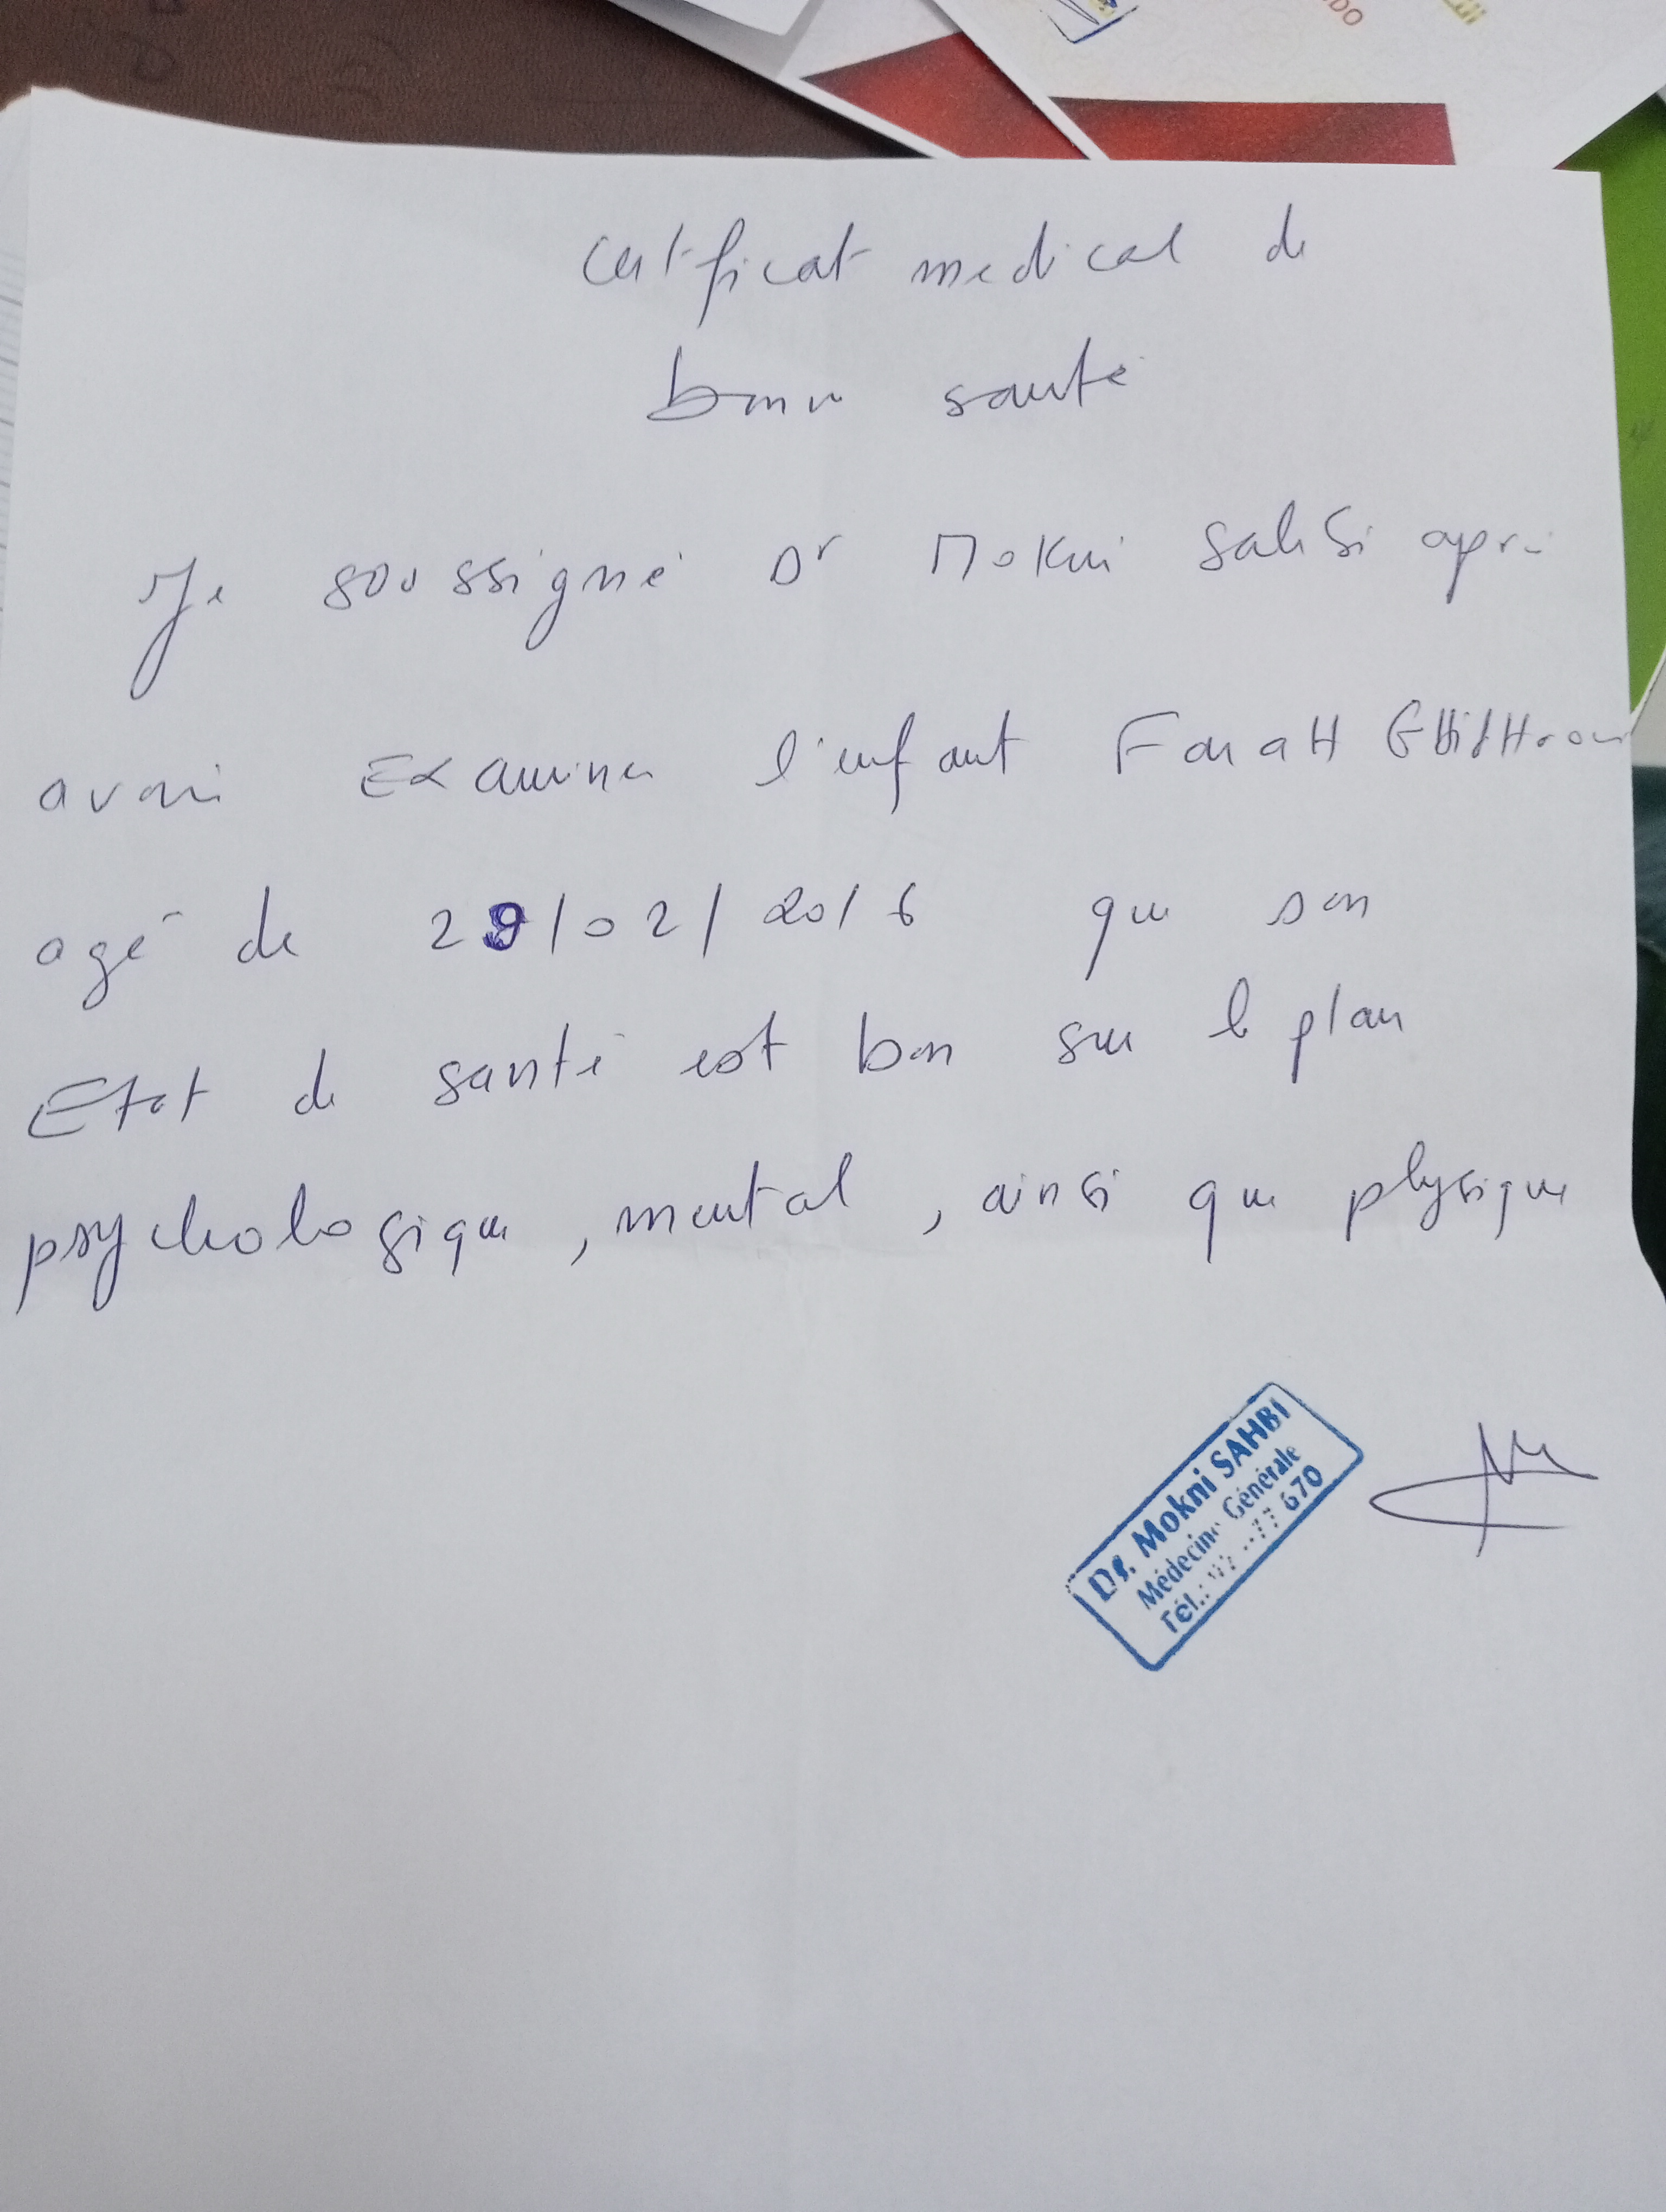 DO
Certificat medical de
bonne santé
Je soussigné Dr Mokni Sahbi après
avoir Examiner l'enfant FaraH
agé de 29/02/2016 que son
Etat de santé est bon sur le plan
psychologique, mental, ainsi que physique
Dr. Mokni SAHBI
Médecine Générale
Tél.: 670